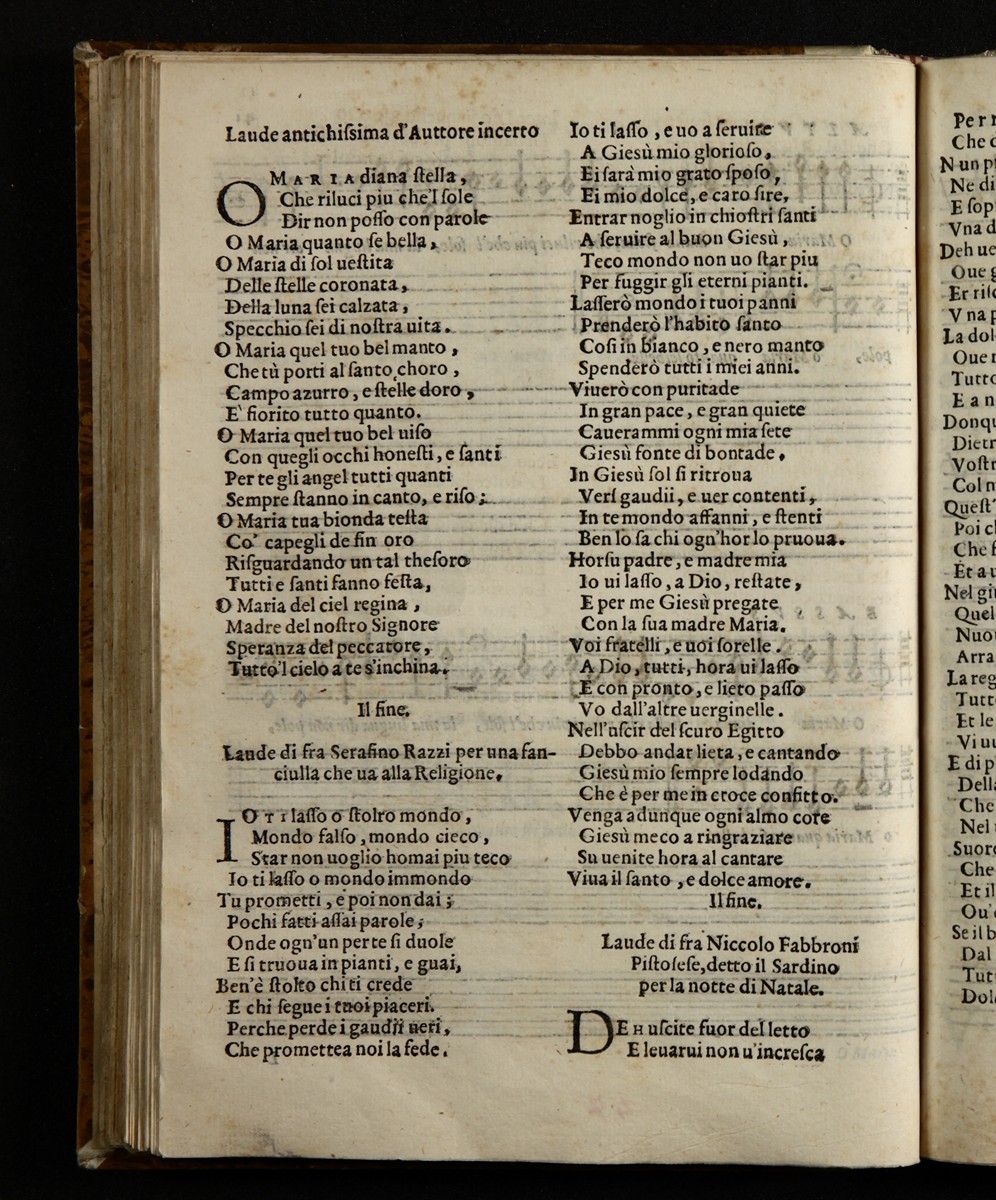 Laude antichiſsima d'Auttore incerto
O MARIA diana ſtella,
Che riluci piu che'l ſole
Dir non poſſo con parole
O Maria quanto ſe bella,
O Maria di ſol ueſtita
Delle ſtelle coronata,
Della luna ſei calzata,
Specchio ſei di noſtra uita.
O Maria quel tuo bel manto,
Che tù porti al ſanto choro,
Campo azurro, e ſtelle doro,
E' fiorito tutto quanto.
O Maria quel tuo bel uiſo
Con quegli occhi honeſti, e ſanti
Per te gli angel tutti quanti
Sempre ſtanno in canto, e riſo;
O Maria tua bionda teſta
Co' capegli de fin oro
Riſguardando un tal theſoro
Tutti e ſanti fanno feſta,
O Maria del ciel regina,
Madre del noſtro Signore
Speranza del peccatore,
Tutto'l cielo a te s'inchina.
Il fine.
Laude di fra Serafino Razzi per una fan-
ciulla che ua alla Religione,
IO TI laſſo o ſtolto mondo,
Mondo falſo, mondo cieco,
Star non uoglio homai piu teco
Io ti laſſo o mondo immondo
Tu prometti, e poi non dai;
Pochi fatti aſſai parole;
Onde ogn'un per te ſi duole
E ſi truoua in pianti, e guai,
Ben'è ſtolto chi ti crede
E chi ſegue i tuoi piaceri.
Perche perde i gaudii ueri,
Che promettea noi la fede.
Io ti laſſo, e uo a ſeruire
A Giesù mio glorioſo,
Ei ſarà mio grato ſpoſo,
Ei mio dolce, e caro ſire,
Entrar noglio in chioſtri ſanti
A ſeruire al buon Giesù,
Teco mondo non uo ſtar piu
Per fuggir gli eterni pianti.
Laſſerò mondo i tuoi panni
Prenderò l'habito ſanto
Coſi in bianco, e nero manto
Spenderò tutti i miei anni.
Viuerò con puritade
In gran pace, e gran quiete
Cauerammi ogni mia ſete
Giesù fonte di bontade,
In Giesù ſol ſi ritroua
Veri gaudii, e uer contenti,
In te mondo affanni, e ſtenti
Ben lo ſa chi ogn'hor lo pruoua.
Horſu padre, e madre mia
Io ui laſſo, a Dio, reſtate,
E per me Giesù pregate
Con la ſua madre Maria.
Voi fratelli, e uoi ſorelle.
A Dio, tutti, hora ui laſſo
E con pronto, e lieto paſſo
Vo dall'altre uerginelle.
Nell'uſcir del ſcuro Egitto
Debbo andar lieta, e cantando
Giesù mio ſempre lodando
Che è per me in croce confitto.
Venga adunque ogni almo core
Giesù meco a ringraziare
Su uenite hora al cantare
Viua il ſanto, e dolce amore.
Il fine.
Laude di fra Niccolo Fabbroni
Piſtoleſe, detto il Sardino
per la notte di Natale.
DEH uſcite fuor del letto
E leuarui non u'increſca
Che
Ne di
Vna d
Deh ue
Oue
V na
La dol
Oue
Tutto
E a
Donqu
Voſtr
Col
Queſt'
Poi
Et a
Quel
Arra
La reg
Et le
Vi
E di
Dell
Che
Nel
Suore
Che
Et il
Se il
Dal